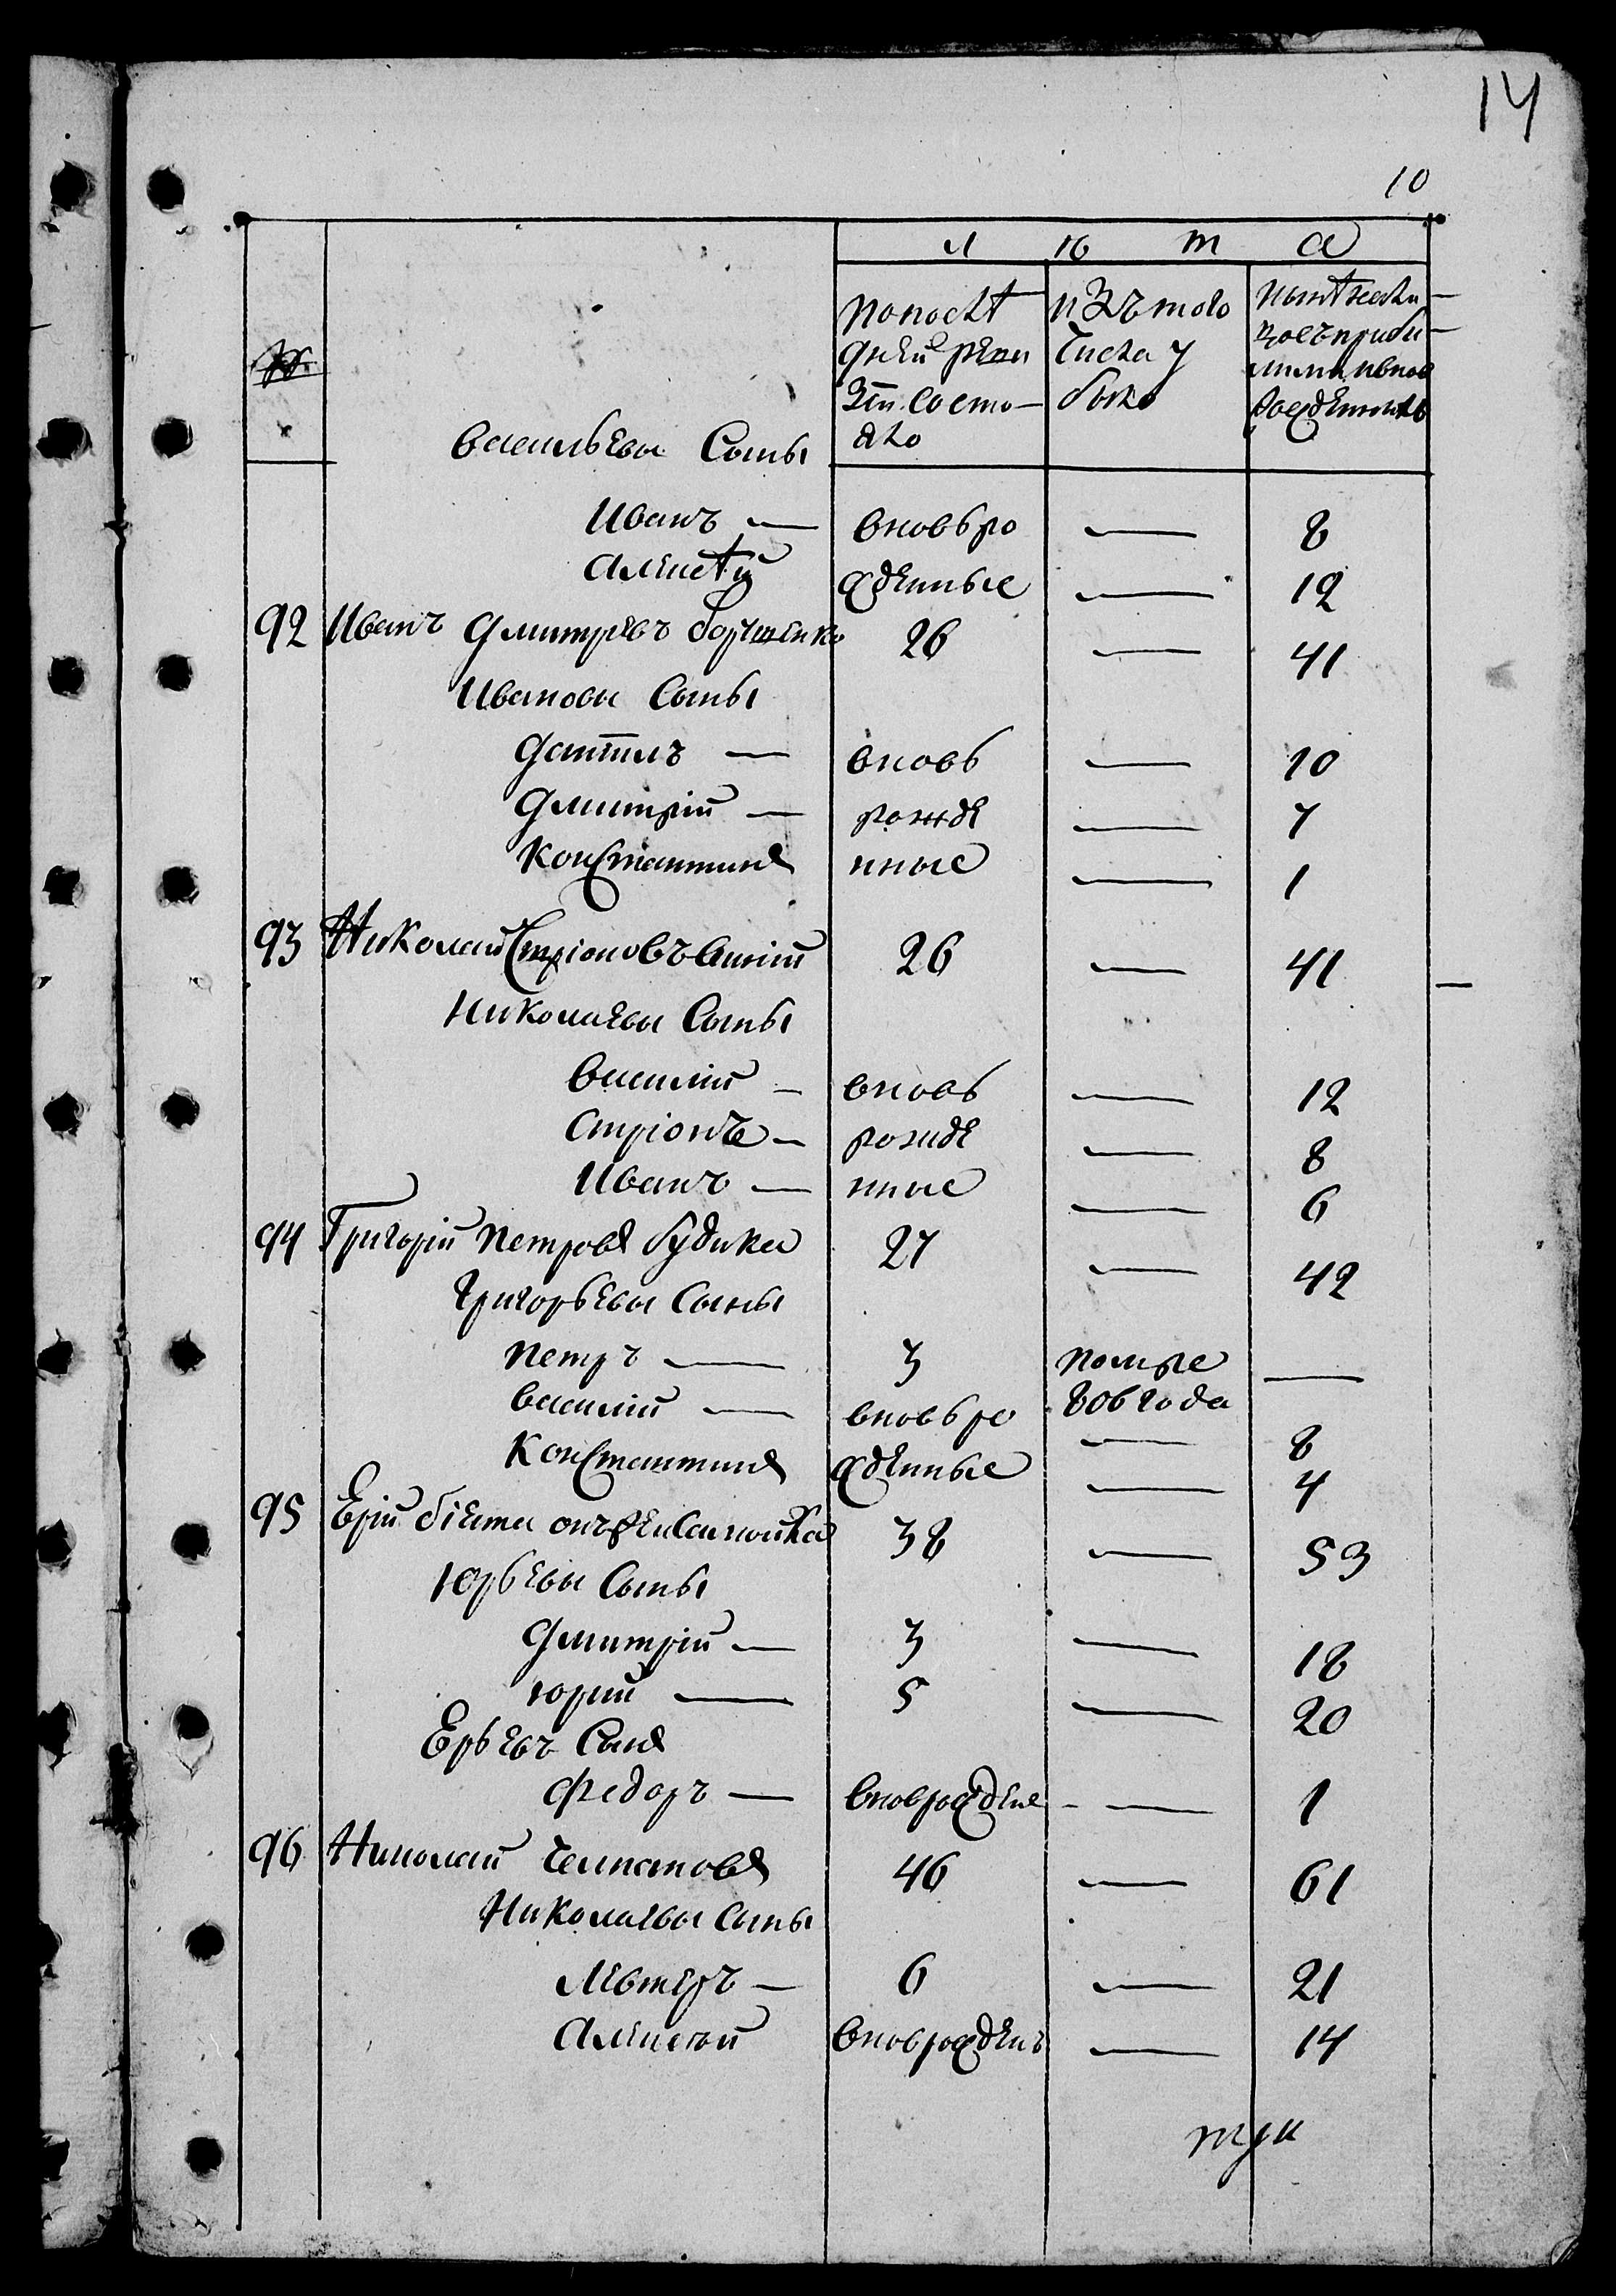 14
10
лѣта
№
попослѣ
дней реви
зіи состо
яло
изъ того
числа у
было
ныне
васильевы Сыны
Иванъ — вновь ро — 8
алексѣй жденные — 12
92 Иванъ дмитревъ борщенко 26 — 41
Ивановы Сыны
даніилъ — вновь — 10
дмитрій — рожде — 7
константинъ нные — 1
93 Николай Стріоновъ 26 — 41
Николаевы Сыны
василій — вновь — 12
стріонъ — рожде — 8
Иванъ — нные — 6
94 Григорій петровъ будика 27 — 42
григорьевы Сыны
петръ — 3 помре —
806 года
василій — вновь ро — 8
константинъ жденные — 4
95 Ерій 38 — 53
Юрьевы Сыны
дмитрій — 3 — 18
юрий — 5 — 20
Ерьевъ Сынъ
федоръ — вноврожден — 1
96 Николай челпановъ 46 — 61
Николаевы сыны
левтеръ — 6 — 21
алексѣй вноврожденъ — 14
три